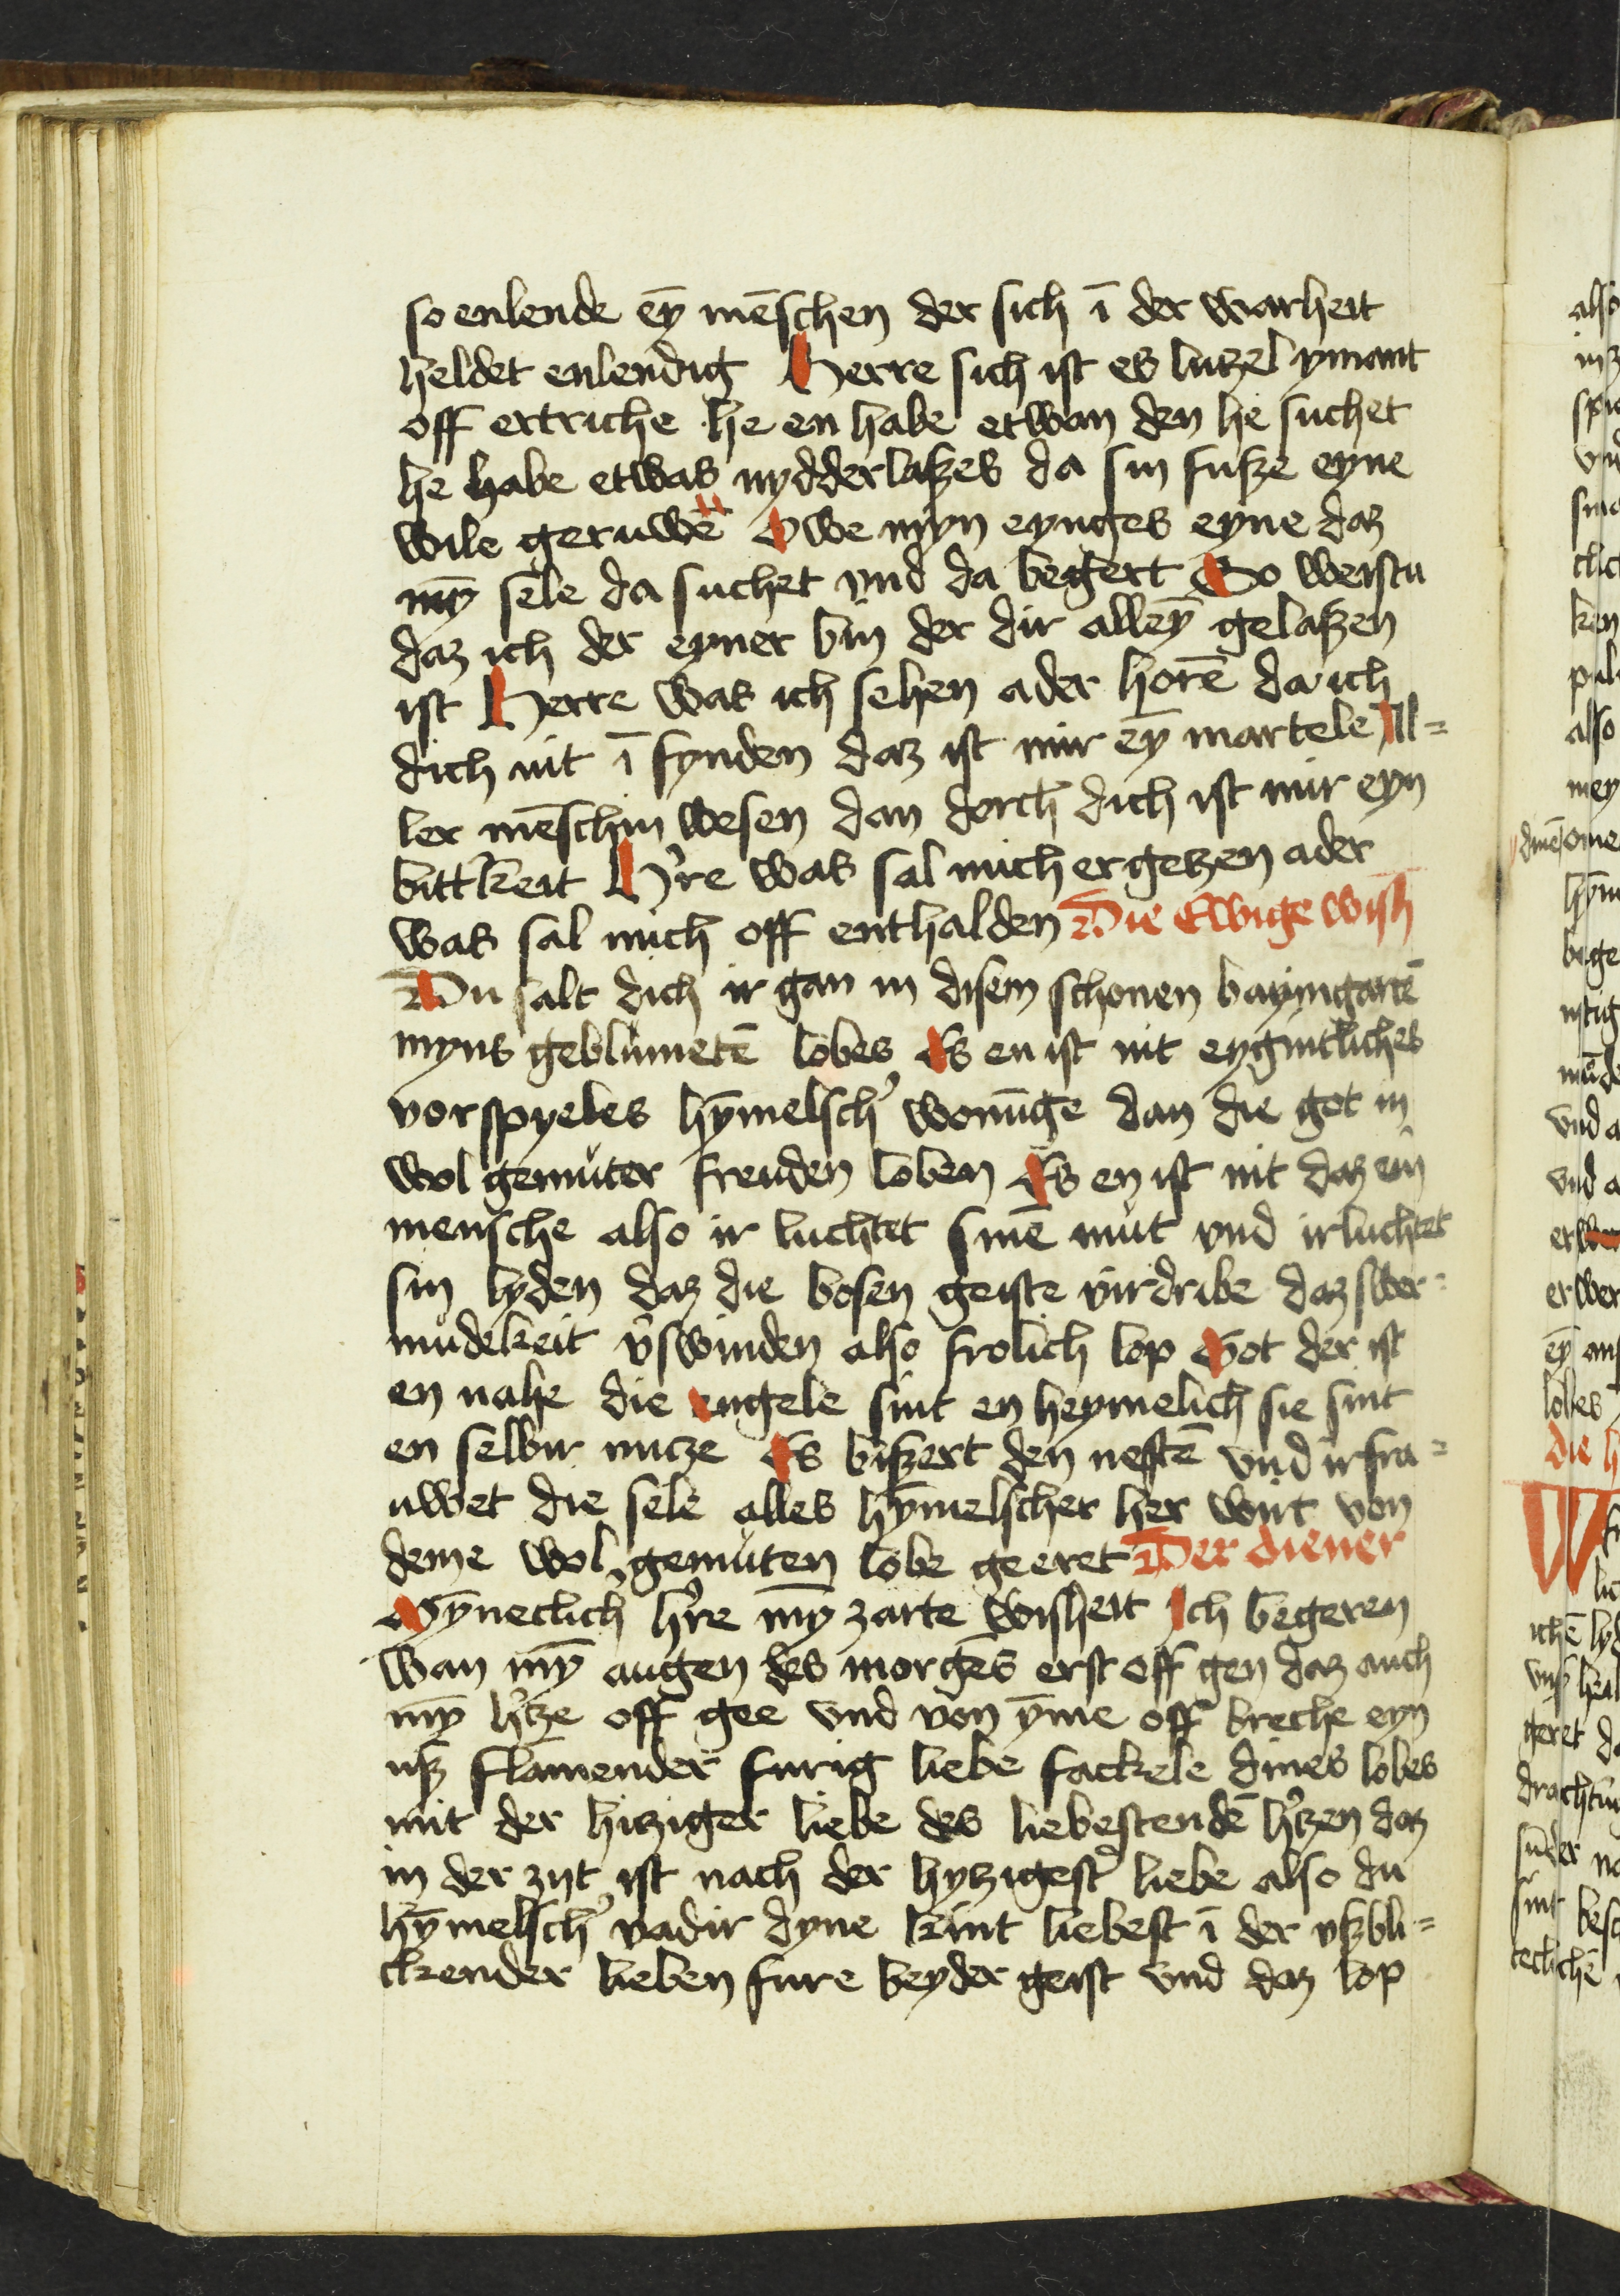 so enlende ey̅ me̅schen der sich i̅ der warheit
heldet enlendig Herre sich ist es lutzel ymant
off ertriche he en habe etwan den he suchet
he habe etwas nydderlaßes da sin fuße eyne
wile geruwe̅ Owe myn eynges eyne daz
my̅ sele da suchet vnd da begert So weistu
daz ich der eyner bin der dir alley̅ gelaßen
ist Herre was ich sehen ader hore̅ da ich
dich nit i̅ fynden daz ist mir ey̅ martele All=
ler me̅schin wesen dan dorch dich ist mir eyn
bittˀkeit Hˀre was sal mich ergetzen ader
was sal mich off enthalden Die Ewige wish
Du salt dich ir gan in disem schonen baymgarte̅
myns geblumete̅ lobes Es en ist nit eygintliches
vorspyeles hy̅melschˀ wonu̅ge dan die got in
wol gemuter freuden loben Es en ist nit daz ein
mensche also ir luchtet sine̅ mut vnd irluchtet
sin lyden daz die bosen geiste virdribe daz swer=
mudekeit vˀswinden also frolich lop Got der ist
en nahe die engele sint en heymelich sie sint
en selbir nutze Es bißert den neste̅ vnd irfra=
uwet die sele alles hy̅melscher her wirt von
deme wol gemuten lobe geeret Der diener
My̅neclich hˀre my̅ zarte wisheit Ich begeren
wan my̅ augen des morge̅s erst off gen daz auch
my̅ hˀtze off gee vnd von y̅me off breche eyn
uß flamender furig liebe fackele dines lobes
mit der hitziger liebe des liebestende̅ hˀtzen daz
in der zijt ist nach der hytzigestˀ liebe also du
hy̅melschˀ vadir dyne kint liebest i̅ der vßbli=
ckender lieben fure beyder geist vnd daz lop